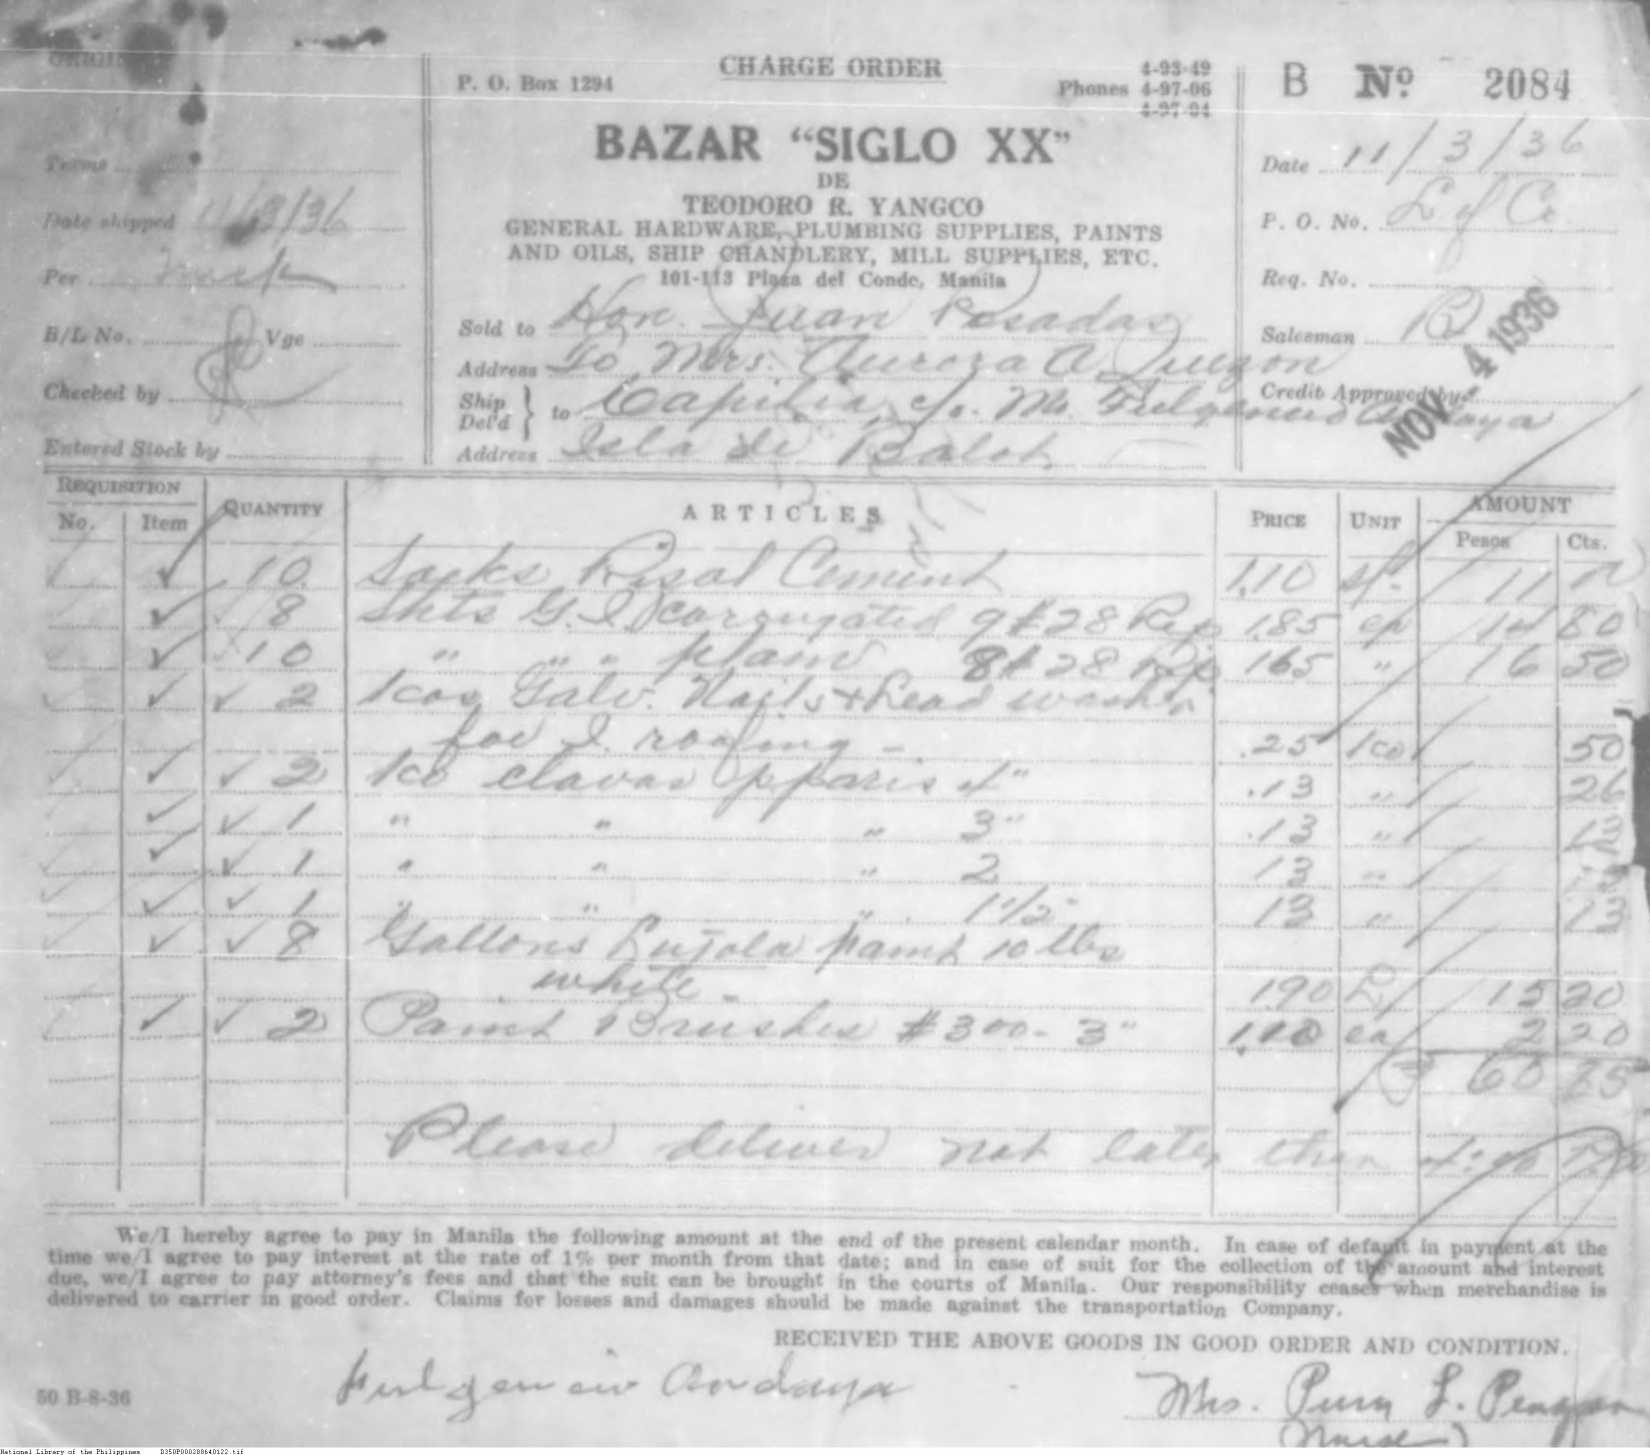 ORIGINAL
CHARGE ORDER
P. O. Box 1294
Phones 4-93-49
4-97-06
4-97-04
B No. 2084
BAZAR "SIGLO XX"
DE
TEODORO R. YANGCO
GENERAL HARDWARE, PLUMBING SUPPLIES, PAINTS
AND OILS, SHIP CHANDLERY, MILL SUPPLIES, ETC.
101-113 Plaza del Conde, Manila
Terms
Date shipped 11/3/36
Per Truck
B/L No. Vge
Checked by
Entered Stock by
Sold to Hon. Juan Posadas
Address To Mrs. Aurora A. Quezon
Ship Del'd } to Capilla, c/o. Mr. Fulgencio
Address Isla de Balot
Date 11/3/36
P. O. No. L of Co.
Req. No.
Salesman B
Credit Approved by
NOV 4 1936
REQUISITION QUANTITY ARTICLES PRICE UNIT AMOUNT
No. Item Pesos Cts.
10 Sacks Rizal Cement 1.10 11
8 Shts G. I. corrugated 9 # 28 Rip 1.85 ea 14 80
10 " " " plain 8 # 28 Rip 1.65 " 16 50
2 Kos Galv. Nails & Lead washer
for I. roofing - .25 Ko 50
2 Ko clavos pparis 4" .13 " 26
1 " " " 3" .13 " 13
1 " " " 2 13 "
1 " " " 1 1/2" 13 " 13
8 Gallons paint 10 lbs
white - 1.90 15 20
2 Paint Brushes # 300 - 3" 1.10 ea 2 20
60 85
Please deliver not later than
We/I hereby agree to pay in Manila the following amount at the end of the present calendar month. In case of default in payment at the
time we/I agree to pay interest at the rate of 1% per month from that date; and in case of suit for the collection of the amount and interest
due, we/I agree to pay attorney's fees and that the suit can be brought in the courts of Manila. Our responsibility ceases when merchandise is
delivered to carrier in good order. Claims for losses and damages should be made against the transportation Company.
RECEIVED THE ABOVE GOODS IN GOOD ORDER AND CONDITION.
50 B-8-36
Fulgencio Mrs. Pura L.
(Nurse)
National Library of the Philippines D350P000208640122.tif